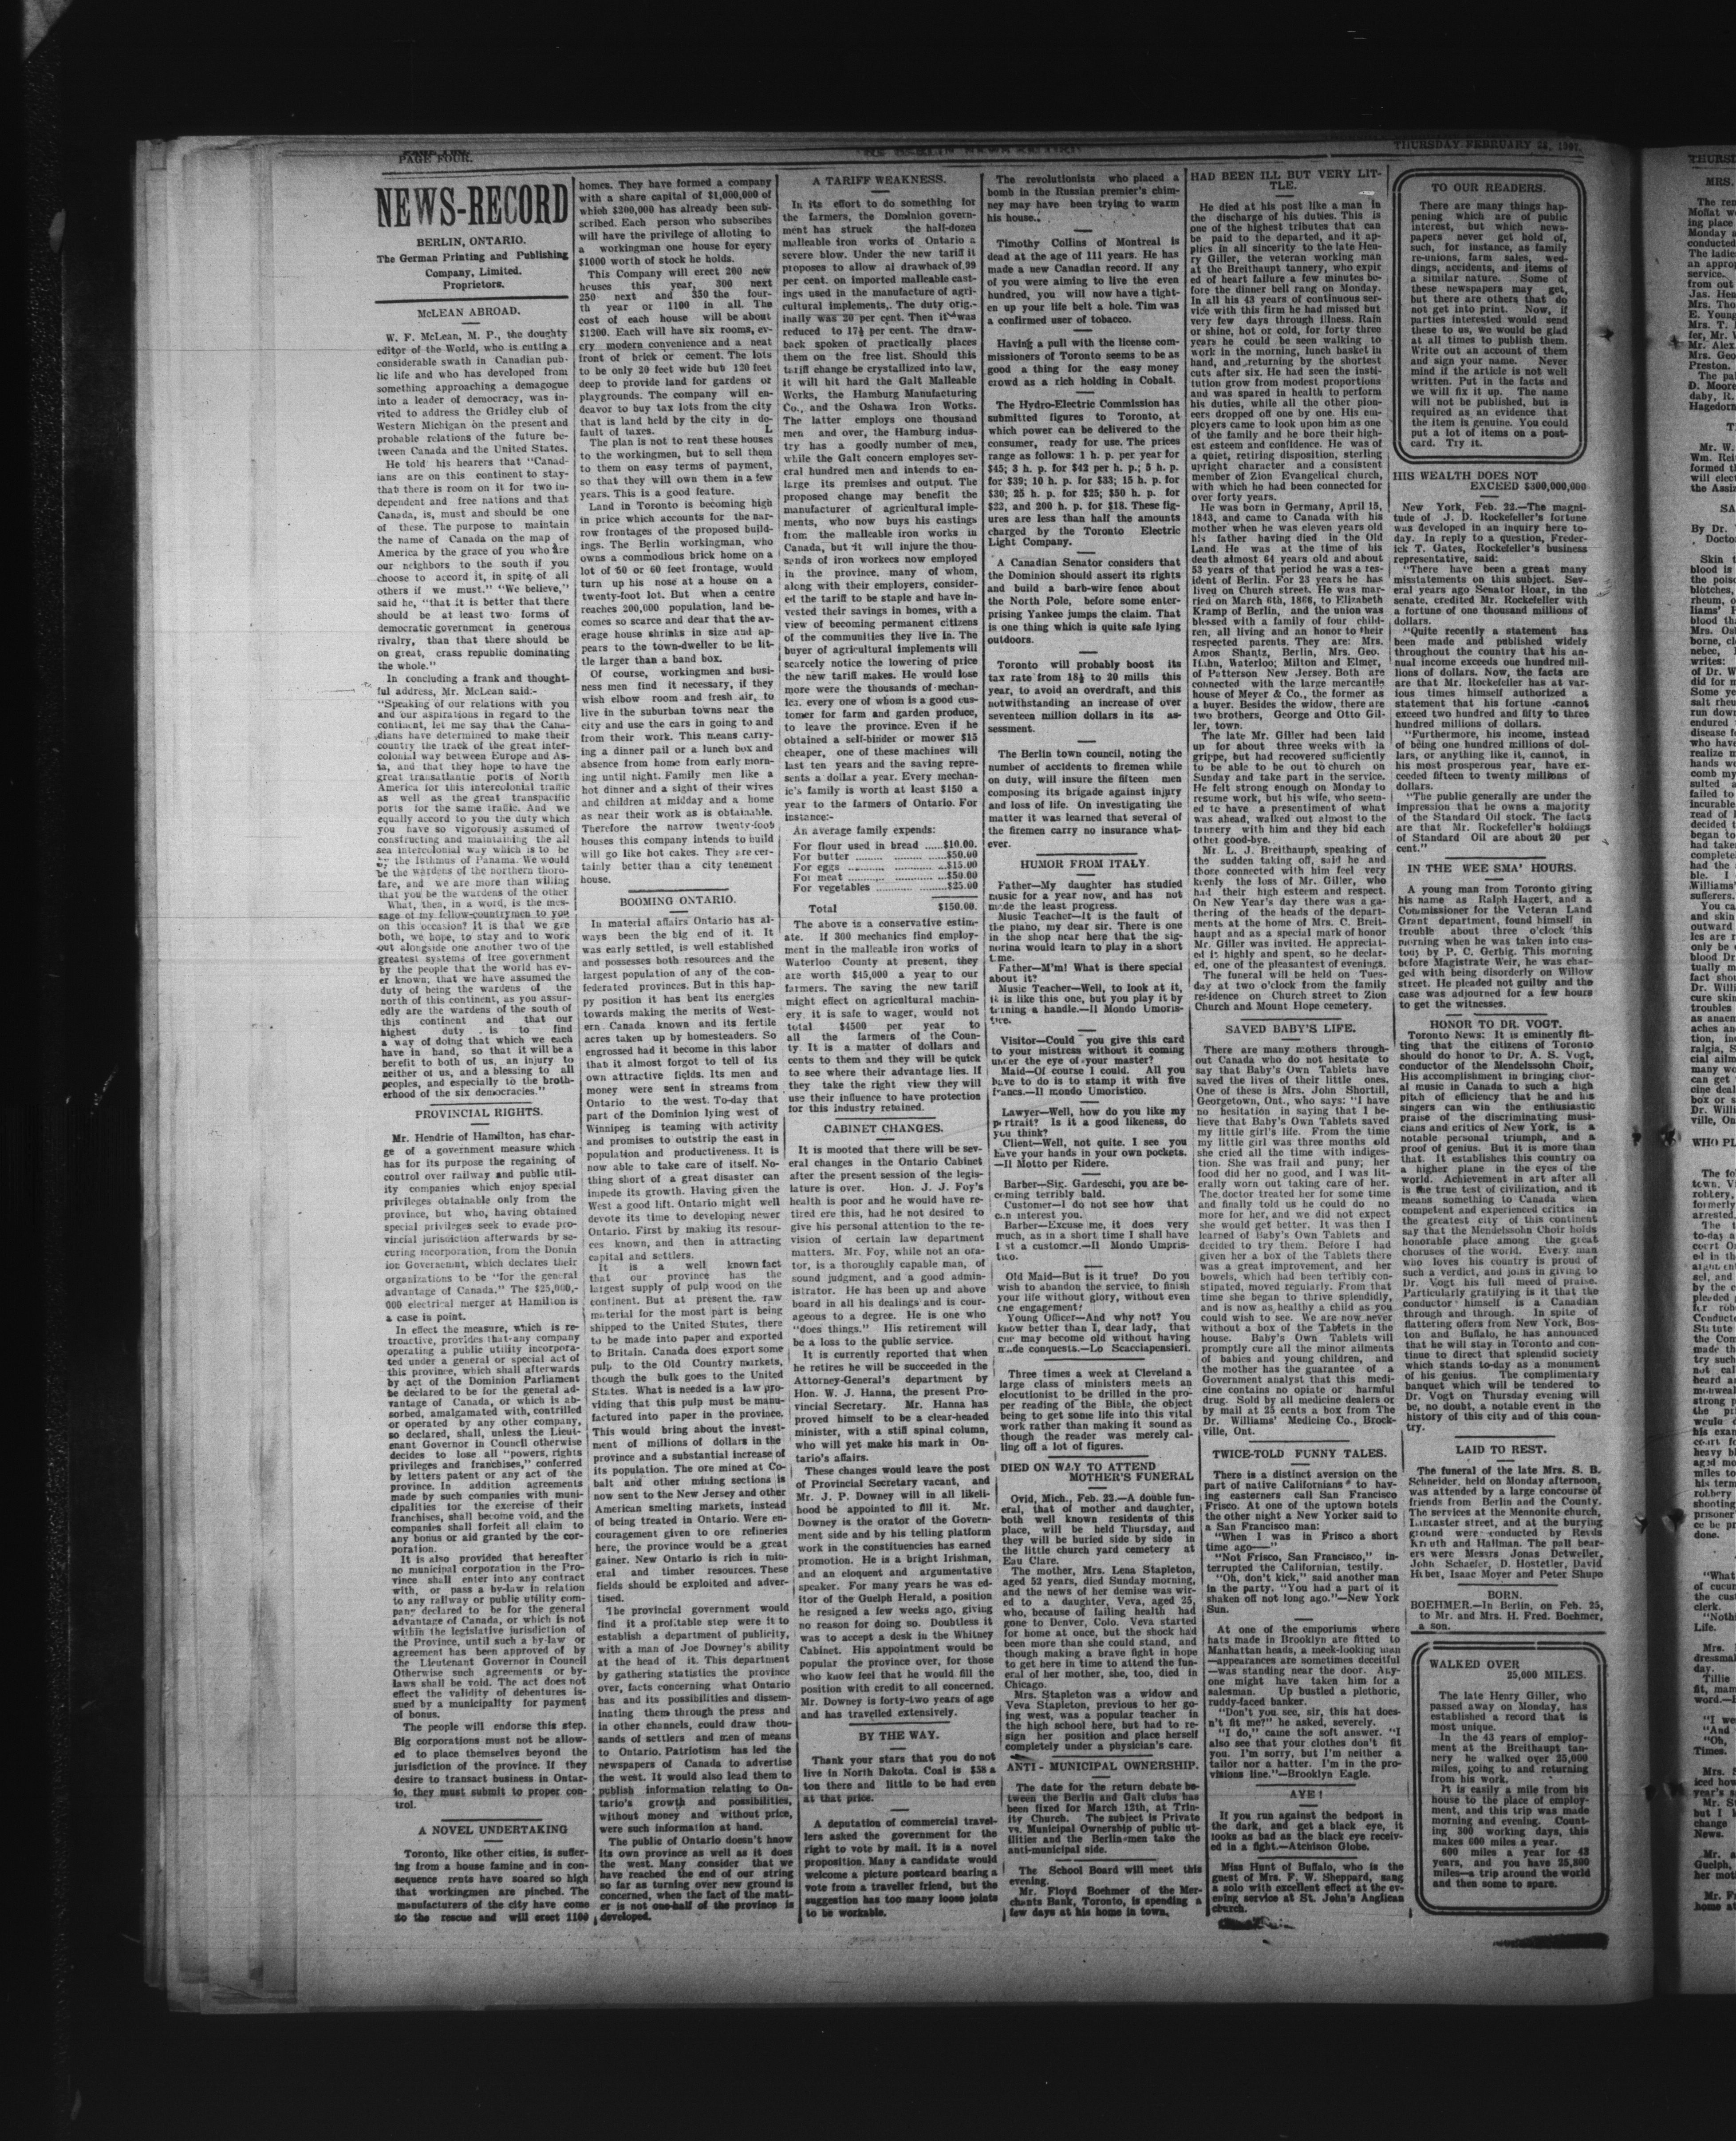 PAGE FOUR.
THURSDAY FEBRUARY
NEWS-RECORD
BERLIN, ONTARIO.
The German Printing and Publishing
Company, Limited.
Proprietors.
McLEAN ABROAD.
W. F. McLean, M. P., the doughty
editor of the World, who is cutting a
considerable swath in Canadian pub-
lic life and who has developed from
something approaching a demagogue
into a leader of democracy, was in-
vited to address the Gridley club of
Western Michigan on the present and
probable relations of the future be-
tween Canada and the United States.
He told his hearers that "Canad-
ians are on this continent to stay-
that there is room on it for two in-
dependent and free nations and that
Canada, is, must and should be one
of these. The purpose to maintain
the name of Canada on the map of
America by the grace of you who are
our neighbors to the south if you
choose to accord it, in spite of all
others if we must." "We believe,"
said he, "that it is better that there
should be at least two forms of
democratic government in generous
rivalry, than that there should be
on great, crass republic dominating
the whole."
In concluding a frank and thought-
ful address, Mr. McLean said:-
"Speaking of our relations with you
and our aspirations in regard to the
continent, let me say that the Cana-
dians have determined to make their
country the track of the great inter-
colonial way between Europe and As-
ia, and that they hope to have the
great transatlantic ports of North
America for this intercolonial traffic
as well as the great transpacific
ports for the same traffic. And we
equally accord to you the duty which
you have so vigorously assumed of
constructing and maintaining the all
sea intercolonial way which is to be
by the Isthmus of Panama. We would
be the wardens of the northern thoro-
fare, and we are more than willing
that you be the wardens of the other
What, then, in a word, is the mes-
sage of my fellow-countrymen to you
on this occasion? It is that we are
both, we hope, to stay and to work
out alongside one another two of the
greatest systems of free government
by the people that the world has ev-
er known; that we have assumed the
duty of being the wardens of the
north of this continent, as you assur-
edly are the wardens of the south of
this continent and that our
highest duty is to find
a way of doing that which we each
have in hand, so that it will be a
benefit to both of us, an injury to
neither of us, and a blessing to all
peoples, and especially to the broth-
erhood of the six democracies."
PROVINCIAL RIGHTS.
Mr. Hendrie of Hamilton, has char-
ge of a government measure which
has for its purpose the regaining of
control over railway and public util-
ity companies which enjoy special
privileges obtainable only from the
province, but who, having obtained
special privileges seek to evade pro-
vincial jurisdiction afterwards by se-
curing incorporation, from the Domin
ion Government, which declares their
organizations to be "for the general
advantage of Canada." The $25,000,-
000 electrical merger at Hamilton is
a case in point.
In effect the measure, which is re-
troactive, provides that any company
operating a public utility incorpora-
ted under a general or special act of
this province, which shall afterwards
by act of the Dominion Parliament
be declared to be for the general ad-
vantage of Canada, or which is ab-
sorbed, amalgamated with, contrilled
or operated by any other company,
so declared, shall, unless the Lieut-
enant Governor in Council otherwise
decides to lose all "powers, rights
privileges and franchises," conferred
by letters patent or any act of the
province. In addition agreements
made by such companies with muni-
cipalities for the exercise of their
franchises, shall become void, and the
companies shall forfeit all claim to
any bonus or aid granted by the cor-
poration.
It is also provided that hereafter
no municipal corporation in the Pro-
vince shall enter into any contract
with, or pass a by-law in relation
to any railway or public utility com-
pany declared to be for the general
advantage of Canada, or which is not
within the legislative jurisdiction of
the Province, until such a by-law or
agreement has been approved of by
the Lieutenant Governor in Council
Otherwise such agreements or by-
laws shall be void. The act does not
effect the validity of debentures is-
sued by a municipality for payment
of bonus.
The people will endorse this step.
Big corporations must not be allow-
ed to place themselves beyond the
jurisdiction of the province. If they
desire to transact business in Ontar-
io, they must submit to proper con-
trol.
A NOVEL UNDERTAKING
Toronto, like other cities, is suffer-
ing from a house famine and in con-
sequence rents have soared so high
that workingmen are pinched. The
manufacturers of the city have come
to the rescue and will erect 1100
homes. They have formed a company
with a share capital of $1,000,000 of
which $200,000 has already been sub-
scribed. Each person who subscribes
will have the privilege of alloting to
a workingman one house for every
$1000 worth of stock he holds.
This Company will erect 200 new
houses this year, 300 next
250 next and 350 the four-
th year or 1100 in all. The
cost of each house will be about
$1200. Each will have six rooms, ev-
ery modern convenience and a neat
front of brick or cement. The lots
to be only 20 feet wide but 120 feet
deep to provide land for gardens or
playgrounds. The company will en-
deavor to buy tax lots from the city
that is land held by the city in de-
fault of taxes.
The plan is not to rent these houses
to the workingmen, but to sell them
to them on easy terms of payment,
so that they will own them in a few
years. This is a good feature.
Land in Toronto is becoming high
in price which accounts for the nar-
row frontages of the proposed build-
ings. The Berlin workingman, who
owns a commodious brick home on a
lot of 50 or 60 feet frontage, would
turn up his nose at a house on a
twenty-foot lot. But when a centre
reaches 200,000 population, land be-
comes so scarce and dear that the av-
erage house shrinks in size and ap-
pears to the town-dweller to be lit-
tle larger than a band box.
Of course, workingmen and busi-
ness men find it necessary, if they
wish elbow room and fresh air, to
live in the suburban towns near the
city and use the cars in going to and
from their work. This means carry-
ing a dinner pail or a lunch box and
absence from home from early morn-
ing until night. Family men like a
hot dinner and a sight of their wives
and children at midday and a home
as near their work as is obtainable.
Therefore the narrow twenty-foot
houses this company intends to build
will go like hot cakes. They are cer-
tainly better than a city tenement
house.
BOOMING ONTARIO.
In material affairs Ontario has al-
ways been the big end of it. It
was early settled, is well established
and possesses both resources and the
largest population of any of the con-
federated provinces. But in this hap-
py position it has beat its energies
towards making the merits of West-
ern Canada known and its fertile
acres taken up by homesteaders. So
engrossed had it become in this labor
that it almost forgot to tell of its
own attractive fields. Its men and
money were sent in streams from
Ontario to the west. To-day that
part of the Dominion lying west of
Winnipeg is teaming with activity
and promises to outstrip the east in
population and productiveness. It is
now able to take care of itself. No-
thing short of a great disaster can
impede its growth. Having given the
West a good lift. Ontario might well
devote its time to developing newer
Ontario. First by making its resour-
ces known, and then in attracting
capital and settlers.
It is a well known fact
that our province has the
largest supply of pulp wood on the
continent. But at present the raw
material for the most part is being
shipped to the United States, there
to be made into paper and exported
to Britain. Canada does export some
pulp to the Old Country markets,
though the bulk goes to the United
States. What is needed is a law pro-
viding that this pulp must be manu-
factured into paper in the province.
This would bring about the invest-
ment of millions of dollars in the
province and a substantial increase of
its population. The ore mined at Co-
balt and other mining sections is
now sent to the New Jersey and other
American smelting markets, instead
of being treated in Ontario. Were en-
couragement given to ore refineries
here, the province would be a great
gainer. New Ontario is rich in min-
eral and timber resources. These
fields should be exploited and adver-
tised.
The provincial government would
find it a profitable step were it to
establish a department of publicity,
with a man of Joe Downey's ability
at the head of it. This department
by gathering statistics the province
over, facts concerning what Ontario
has and its possibilities and dissem-
inating them through the press and
in other channels, could draw thou-
sands of settlers and men of means
to Ontario. Patriotism has led the
newspapers of Canada to advertise
the west. It would also lead them to
publish information relating to On-
tario's growth and possibilities,
without money and without price,
were such information at hand.
The public of Ontario doesn't know
its own province as well as it does
the west. Many consider that we
have reached the end of our string
so far as turning over new ground is
concerned, when the fact of the matt-
er is not one-half of the province is
developed.
A TARIFF WEAKNESS.
In its effort to do something for
the farmers, the Dominion govern-
ment has struck the half-dozen
malleable iron works of Ontario a
severe blow. Under the new tariff it
proposes to allow al drawback of 99
per cent. on imported malleable cast-
ings used in the manufacture of agri-
cultural implements,. The duty orig-
inally was 20 per cent. Then it was
reduced to 17½ per cent. The draw-
back spoken of practically places
them on the free list. Should this
tariff change be crystalized into law,
it will hit hard the Galt Malleable
Works, the Hamburg Manufacturing
Co., and the Oshawa Iron Works.
The latter employs one thousand
men and over, the Hamburg indus-
try has a goodly number of men,
while the Galt concern employes sev-
eral hundred men and intends to en-
large its premises and output. The
proposed change may benefit the
manufacturer of agricultural imple-
ments, who now buys his castings
from the malleable iron works in
Canada, but it will injure the thou-
sands of iron workecs now employed
in the province, many of whom,
along with their employers, consider-
ed the tariff to be staple and have in-
vested their savings in homes, with a
view of becoming permanent citizens
of the communities they live in. The
buyer of agricultural implements will
scarcely notice the lowering of price
the new tariff makes. He would lose
more were the thousands of mechan-
ics. every one of whom is a good cus-
tomer for farm and garden produce,
to leave the province. Even if he
obtained a self-binder or mower $15
cheaper, one of these machines will
last ten years and the saving repre-
sents a dollar a year. Every mechan-
ic's family is worth at least $150 a
year to the farmers of Ontario. For
instance:-
An average family expends:
For flour used in bread .....$10.00.
For butter ......... .......... ......$50.00
For eggs .......... ............ ...$15.00
For meat .......... ............ ...$50.00
For vegetables .............. ......$25.00
Total $150.00.
The above is a conservative estim-
ate. If 300 mechanics find employ-
ment in the malleable iron works of
Waterloo County at present, they
are worth $45,000 a year to our
farmers. The saving the new tariff
might effect on agricultural machin-
ery, it is safe to wager, would not
total $4500 per year to
all the farmers of the Coun-
ty. It is a matter of dollars and
cents to them and they will be quick
to see where their advantage lies. If
they take the right view they will
use their influence to have protection
for this industry retained.
CABINET CHANGES.
It is mooted that there will be sev-
eral changes in the Ontario Cabinet
after the present session of the legis-
lature is over. Hon. J. J. Foy's
health is poor and he would have re-
tired ere this, had he not desired to
give his personal attention to the re-
vision of certain law department
matters. Mr. Foy, while not an ora-
tor, is a thoroughly capable man, of
sound judgment, and a good admin-
istrator. He has been up and above
board in all his dealings and is cour-
ageous to a degree. He is one who
"does things." His retirement will
be a loss to the public service.
It is currently reported that when
he retires he will be succeeded in the
Attorney-General's department by
Hon. W. J. Hanna, the present Pro-
vincial Secretary. Mr. Hanna has
proved himself to be a clear-headed
minister, with a stiff spinal column,
who will yet make his mark in On-
tario's affairs.
These changes would leave the post
of Provincial Secretary vacant, and
Mr. J. P. Downey will in all likeli-
hood be appointed to fill it. Mr.
Downey is the orator of the Govern-
ment side and by his telling platform
work in the constituencies has earned
promotion. He is a bright Irishman,
and an eloquent and argumentative
speaker. For many years he was ed-
itor of the Guelph Herald, a position
he resigned a few weeks ago, giving
no reason for doing so. Doubtless it
was to accept a desk in the Whitney
Cabinet. His appointment would be
popular the province over, for those
who know feel that he would fill the
position with credit to all concerned.
Mr. Downey is forty-two years of age
and has travelled extensively.
BY THE WAY.
Thank your stars that you do not
live in North Dakota. Coal is $58 a
ton there and little to be had even
at that price.
A deputation of commercial travel-
lers asked the government for the
right to vote by mail. It is a novel
proposition. Many a candidate would
welcome a picture postcard bearing a
vote from a traveller friend, but the
suggestion has too many loose joints
to be workable.
The revolutionists who placed a
bomb in the Russian premier's chim-
ney may have been trying to warm
his house..
Timothy Collins of Montreal is
dead at the age of 111 years. He has
made a new Canadian record. If any
of you were aiming to live the even
hundred, you will now have a tight-
en up your life belt a hole. Tim was
a confirmed user of tobacco.
Having a pull with the license com-
missioners of Toronto seems to be as
good a thing for the easy money
crowd as a rich holding in Cobalt.
The Hydro-Electric Commission has
submitted figures to Toronto, at
which power can be delivered to the
consumer, ready for use. The prices
range as follows: 1 h. p. per year for
$45; 3 h. p. for $42 per h. p.; 5 h. p.
for $39; 10 h. p. for $33; 15 h. p. for
$30; 25 h. p. for $25; $50 h. p. for
$22, and 200 h. p. for $18. These fig-
ures are less than half the amounts
charged by the Toronto Electric
Light Company.
A Canadian Senator considers that
the Dominion should assert its rights
and build a barb-wire fence about
the North Pole, before some enter-
prising Yankee jumps the claim. That
is one thing which is quite safe lying
outdoors.
Toronto will probably boost its
tax rate from 18½ to 20 mills this
year, to avoid an overdraft, and this
notwithstanding an increase of over
seventeen million dollars in its as-
sessment.
The Berlin town council, noting the
number of accidents to firemen while
on duty, will insure the fifteen men
composing its brigade against injury
and loss of life. On investigating the
matter it was learned that several of
the firemen carry no insurance what-
ever.
HUMOR FROM ITALY.
Father—My daughter has studied
music for a year now, and has not
made the least progress.
Music Teacher—It is the fault of
the piano, my dear sir. There is one
in the shop near here that the sig-
norina would learn to play in a short
time.
Father—M'm! What is there special
about it?
Music Teacher—Well, to look at it,
it is like this one, but you play it by
turning a handle.—Il Mondo Umoris-
tico.
Visitor—Could you give this card
to your mistress without it coming
under the eye of your master?
Maid—Of course I could. All you
have to do is to stamp it with five
francs.—Il mondo Umoristico.
Lawyer—Well, how do you like my
portrait? Is it a good likeness, do
you think?
Client—Well, not quite. I see you
have your hands in your own pockets.
—Il Motto per Ridere.
Barber—Sig. Gardeschi, you are be-
coming terribly bald.
Customer—I do not see how that
can interest you.
Barber—Excuse me, it does very
much, as in a short time I shall have
lost a customer.—Il Mondo Umpris-
tico.
Old Maid—But is it true? Do you
wish to abandon the service, to finish
your life without glory, without even
one engagement?
Young Officer—And why not? You
know better than I, dear lady, that
one may become old without having
made conquests.—Lo Scacciapensieri.
Three times a week at Cleveland a
large class of ministers meets an
elocutionist to be drilled in the pro-
per reading of the Bible, the object
being to get some life into this vital
work rather than making it sound as
though the reader was merely cal-
ling off a lot of figures.
DIED ON WAY TO ATTEND
MOTHER'S FUNERAL
Ovid, Mich., Feb. 22.—A double fun-
eral, that of mother and daughter,
both well known residents of this
place, will be held Thursday, and
they will be buried side by side in
the little church yard cemetery at
Eau Clare.
The mother, Mrs. Lena Stapleton,
aged 52 years, died Sunday morning,
and the news of her demise was wir-
ed to a daughter, Veva, aged 25,
who, because of failing health had
gone to Denver, Colo. Veva started
for home at once, but the shock had
been more than she could stand, and
though making a brave fight in hope
to get here in time to attend the fun-
eral of her mother, she, too, died in
Chicago.
Mrs. Stapleton was a widow and
Veva Stapleton, previous to her go-
ing west, was a popular teacher in
the high school here, but had to re-
sign her position and place herself
completely under a physician's care.
ANTI - MUNICIPAL OWNERSHIP.
The date for the return debate be-
tween the Berlin and Galt clubs has
been fixed for March 12th, at Trin-
ity Church. The subject is Private
vs. Municipal Ownership of public ut-
ilities and the Berlin men take the
anti-municipal side.
The School Board will meet this
evening.
Mr. Floyd Boehmer of the Mer-
chants Bank, Toronto, is spending a
few days at his home in town.
HAD BEEN ILL BUT VERY LIT-
TLE.
He died at his post like a man in
the discharge of his duties. This is
one of the highest tributes that can
be paid to the departed, and it ap-
plies in all sincerity to the late Hen-
ry Giller, the veteran working man
at the Breithaupt tannery, who expir
ed of heart failure a few minutes be-
fore the dinner bell rang on Monday.
In all his 43 years of continuous ser-
vice with this firm he had missed but
very few days through illness. Rain
or shine, hot or cold, for forty three
years he could be seen walking to
work in the morning, lunch basket in
hand, and returning by the shortest
cuts after six. He had seen the insti-
tution grow from modest proportions
and was spared in health to perform
his duties, while all the other pion-
eers dropped off one by one. His em-
ployers came to look upon him as one
of the family and he bore their high-
est esteem and confidence. He was of
a quiet, retiring disposition, sterling
upright character and a consistent
member of Zion Evangelical church,
with which he had been connected for
over forty years.
He was born in Germany, April 15,
1843, and came to Canada with his
mother when he was eleven years old
his father having died in the Old
Land. He was at the time of his
death almost 64 years old and about
53 years of that period he was a res-
ident of Berlin. For 23 years he has
lived on Church street. He was mar-
ried on March 6th, 1866, to Elizabeth
Kramp of Berlin, and the union was
blessed with a family of four child-
ren, all living and an honor to their
respected parents. They are: Mrs.
Amos Shantz, Berlin, Mrs. Geo.
Hahn, Waterloo; Milton and Elmer,
of Patterson New Jersey. Both are
connected with the large mercantile
house of Meyer & Co., the former as
a buyer. Besides the widow, there are
two brothers, George and Otto Gil-
ler, town.
The late Mr. Giller had been laid
up for about three weeks with la
grippe, but had recovered sufficiently
to be able to be out to church on
Sunday and take part in the service.
He felt strong enough on Monday to
resume work, but his wife, who seem-
ed to have a presentiment of what
was ahead, walked out almost to the
tannery with him and they bid each
other good-bye.
Mr. L. J. Breithaupt, speaking of
the sudden taking off, said he and
those connected with him feel very
keenly the loss of Mr. Giller, who
had their high esteem and respect.
On New Year's day there was a ga-
thering of the heads of the depart-
ments at the home of Mrs. C. Breit-
haupt and as a special mark of honor
Mr. Giller was invited. He appreciat-
ed it highly and spent, so he declar-
ed, one of the pleasantest of evenings.
The funeral will be held on Tues-
day at two o'clock from the family
residence on Church street to Zion
Church and Mount Hope cemetery.
SAVED BABY'S LIFE.
There are many mothers through-
out Canada who do not hesitate to
say that Baby's Own Tablets have
saved the lives of their little ones.
One of these is Mrs. John Shortill,
Georgetown, Ont., who says: "I have
no hesitation in saying that I be-
lieve that Baby's Own Tablets saved
my little girl's life. From the time
my little girl was three months old
she cried all the time with indiges-
tion. She was frail and puny; her
food did her no good, and I was lit-
erally worn out taking care of her.
The doctor treated her for some time
and finally told us he could do no
more for her, and we did not expect
she would get better. It was then I
learned of Baby's Own Tablets and
decided to try them. Before I had
given her a box of the Tablets there
was a great improvement, and her
bowels, which had been terribly con-
stipated, moved regularly. From that
time she began to thrive splendidly,
and is now as healthy a child as you
could wish to see. We are now never
without a box of the Tablets in the
house. Baby's Own Tablets will
promptly cure all the minor ailments
of babies and young children, and
the mother has the guarantee of a
Government analyst that this medi-
cine contains no opiate or harmful
drug. Sold by all medicine dealers or
by mail at 25 cents a box from The
Dr. Williams' Medicine Co., Brock-
ville, Ont.
TWICE-TOLD FUNNY TALES.
There is a distinct aversion on the
part of native Californians to hav-
ing easterners call San Francisco
Frisco. At one of the uptown hotels
the other night a New Yorker said to
a San Francisco man:
"When I was in Frisco a short
time ago—"
"Not Frisco, San Francisco," in-
terrupted the Californian, testily.
"Oh, don't kick," said another man
in the party. "You had a part of it
shaken off not long ago."—New York
Sun.
At one of the emporiums where
hats made in Brooklyn are fitted to
Manhattan heads, a meek-looking man
—appearances are sometimes deceitful
—was standing near the door. Any-
one might have taken him for a
salesman. Up bustled a plethoric,
ruddy-faced banker.
"Don't you see, sir, this hat does-
n't fit me?" he asked, severely.
"I do," came the soft answer. "I
also see that your clothes don't fit
you. I'm sorry, but I'm neither a
tailor nor a hatter. I'm in the pro-
visions line."—Brooklyn Eagle.
AYE!
If you run against the bedpost in
the dark, and get a black eye, it
looks as bad as the black eye receiv-
ed in a fight.—Atchison Globe.
Miss Hunt of Buffalo, who is the
guest of Mrs. F. W. Sheppard, sang
a solo with excellent effect at the ev-
ening service at St. John's Anglican
church.
TO OUR READERS.
There are many things hap-
pening which are of public
interest, but which news-
papers never get hold of,
such, for instance, as family
re-unions, farm sales, wed-
dings, accidents, and items of
a similar nature. Some of
these newspapers may get,
but there are others that do
not get into print. Now, if
parties interested would send
these to us, we would be glad
at all times to publish them.
Write out an account of them
and sign your name. Never
mind if the article is not well
written. Put in the facts and
we will fix it up. The name
will not be published, but is
required as an evidence that
the item is genuine. You could
put a lot of items on a post-
card. Try it.
HIS WEALTH DOES NOT
EXCEED $300,000,000
New York, Feb. 22.—The magni-
tude of J. D. Rockefeller's fortune
was developed in an inquiry here to-
day. In reply to a question, Freder-
ick T. Gates, Rockefeller's business
representative, said:
"There have been a great many
misstatements on this subject. Sev-
eral years ago Senator Hoar, in the
senate, credited Mr. Rockefeller with
a fortune of one thousand millions of
dollars.
"Quite recently a statement has
been made and published widely
throughout the country that his an-
nual income exceeds one hundred mil-
lions of dollars. Now, the facts are
are that Mr. Rockefeller has at var-
ious times himself authorized a
statement that his fortune cannot
exceed two hundred and fifty to three
hundred millions of dollars.
"Furthermore, his income, instead
of being one hundred millions of dol-
lars, or anything like it, cannot, in
his most prosperous year, have ex-
ceeded fifteen to twenty millions of
dollars.
"The public generally are under the
impression that he owns a majority
of the Standard Oil stock. The facts
are that Mr. Rockefeller's holdings
of Standard Oil are about 20 per
cent."
IN THE WEE SMA' HOURS.
A young man from Toronto giving
his name as Ralph Hagert, and a
Commissioner for the Veteran Land
Grant department, found himself in
trouble about three o'clock this
morning when he was taken into cus-
tody by P. C. Gerbig. This morning
before Magistrate Weir, he was char-
ged with being disorderly on Willow
street. He pleaded not guilty and the
case was adjourned for a few hours
to get the witnesses.
HONOR TO DR. VOGT.
Toronto News: It is eminently fit-
ting that the citizens of Toronto
should do honor to Dr. A. S. Vogt,
conductor of the Mendelssohn Choir,
His accomplishment in bringing chor-
al music in Canada to such a high
pitch of efficiency that he and his
singers can win the enthusiastic
praise of the discriminating musi-
cians and critics of New York, is a
notable personal triumph, and a
proof of genius. But it is more than
that. It establishes this country on
a higher plane in the eyes of the
world. Achievement in art after all
is the true test of civilization, and it
means something to Canada when
competent and experienced critics in
the greatest city of this continent
say that the Mendelssohn Choir holds
honorable place among the great
choruses of the world. Every man
who loves his country is proud of
such a verdict, and joins in giving to
Dr. Vogt his full meed of praise.
Particularly gratifying is it that the
conductor himself is a Canadian
through and through. In spite of
flattering offers from New York, Bos-
ton and Buffalo, he has announced
that he will stay in Toronto and con-
tinue to direct that splendid society
which stands to-day as a monument
of his genius. The complimentary
banquet which will be tendered to
Dr. Vogt on Thursday evening will
be, no doubt, a notable event in the
history of this city and of this coun-
try.
LAID TO REST.
The funeral of the late Mrs. S. B.
Schneider, held on Monday afternoon,
was attended by a large concourse of
friends from Berlin and the County.
The services at the Mennonite church,
Lancaster street, and at the burying
ground were conducted by Revds
Knuth and Hallman. The pall bear-
ers were Messrs Jonas Detweiler,
John Schaefer, D. Hostetler, David
Hibet, Isaac Moyer and Peter Shupe
BORN.
BOEHMER.—In Berlin, on Feb. 25,
to Mr. and Mrs. H. Fred. Boehmer,
a son.
WALKED OVER
25,000 MILES.
The late Henry Giller, who
passed away on Monday, has
established a record that is
most unique.
In the 43 years of employ-
ment at the Breithaupt tan-
nery he walked over 25,000
miles, going to and returning
from his work.
It is easily a mile from his
house to the place of employ-
ment, and this trip was made
morning and evening. Count-
ing 300 working days, this
makes 600 miles a year.
600 miles a year for 43
years, and you have 25,800
miles—a trip around the world
and then some to spare.